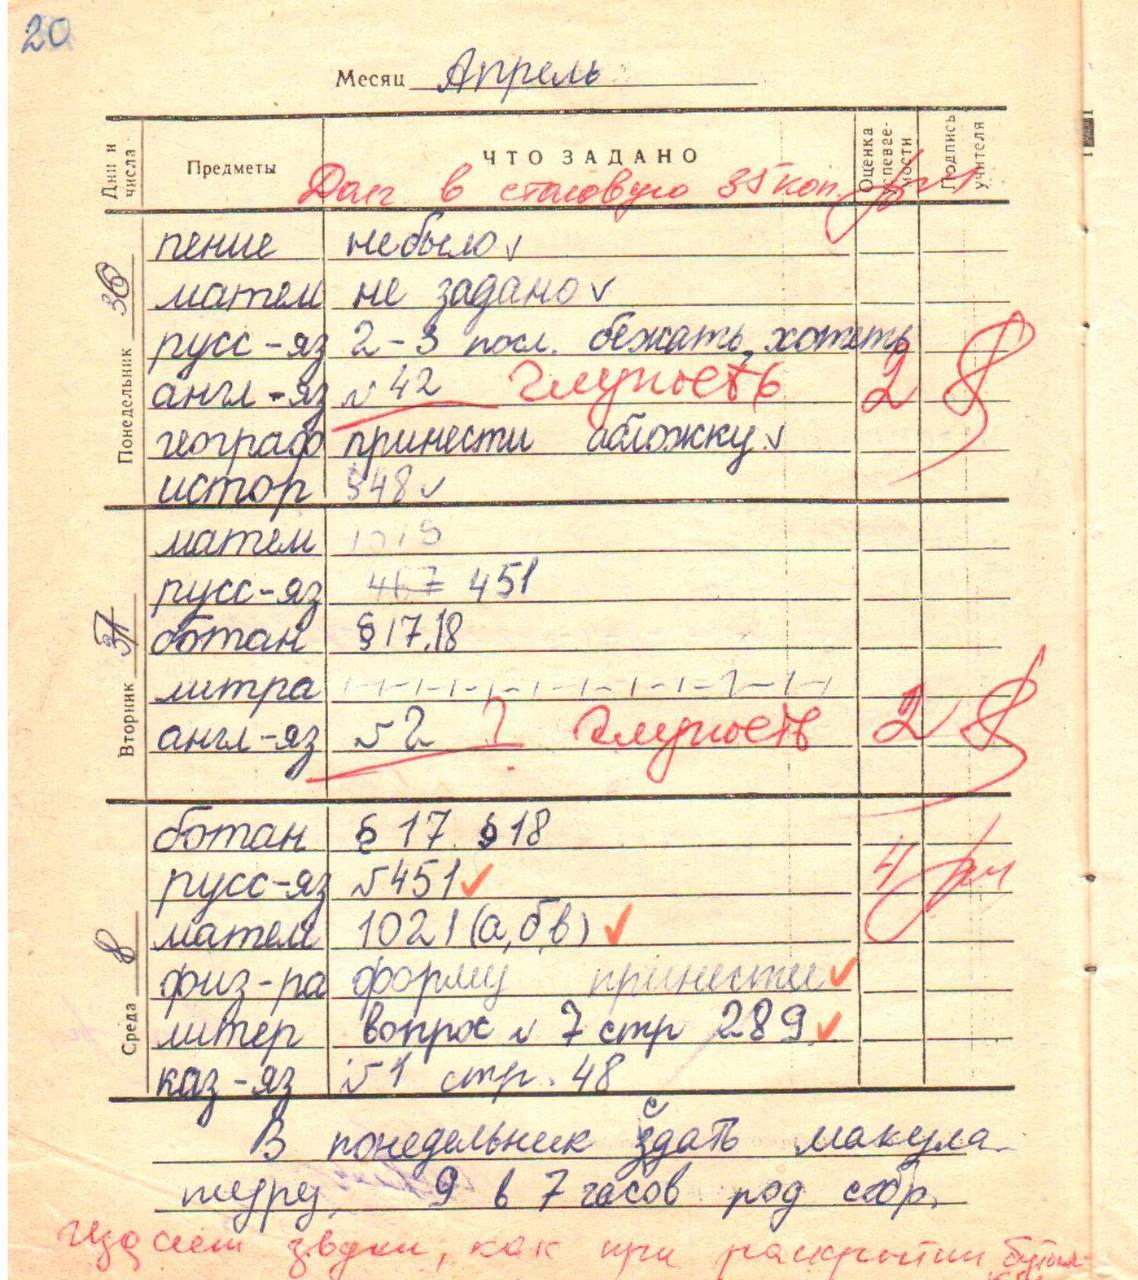 20
Месяц Апрель
Дни и числа Предметы ЧТО ЗАДАНО Оценка успевае-мости Подпись учителя
Долг в столовую 35 коп.
Понедельник
пение не было
матем не задано
русс-яз 2-3 посл. бежать, хотеть
англ-яз № 42 Глупость 2
географ принести обложку
истор §48
Вторник
матем
русс-яз 467 451
ботан §17,18
литра
англ-яз №2 ? Глупость 2
Среда 8
ботан § 17. §18
русс-яз №451 4
матем 1021 (а,б,в)
физ-ра форму принести
литер вопрос № 7 стр 289
каз-яз №1 стр. 48
В понедельник сдать макула-
туру. 9 в 7 часов род собр.
Издает звуки, как при раскрытии бутыл-